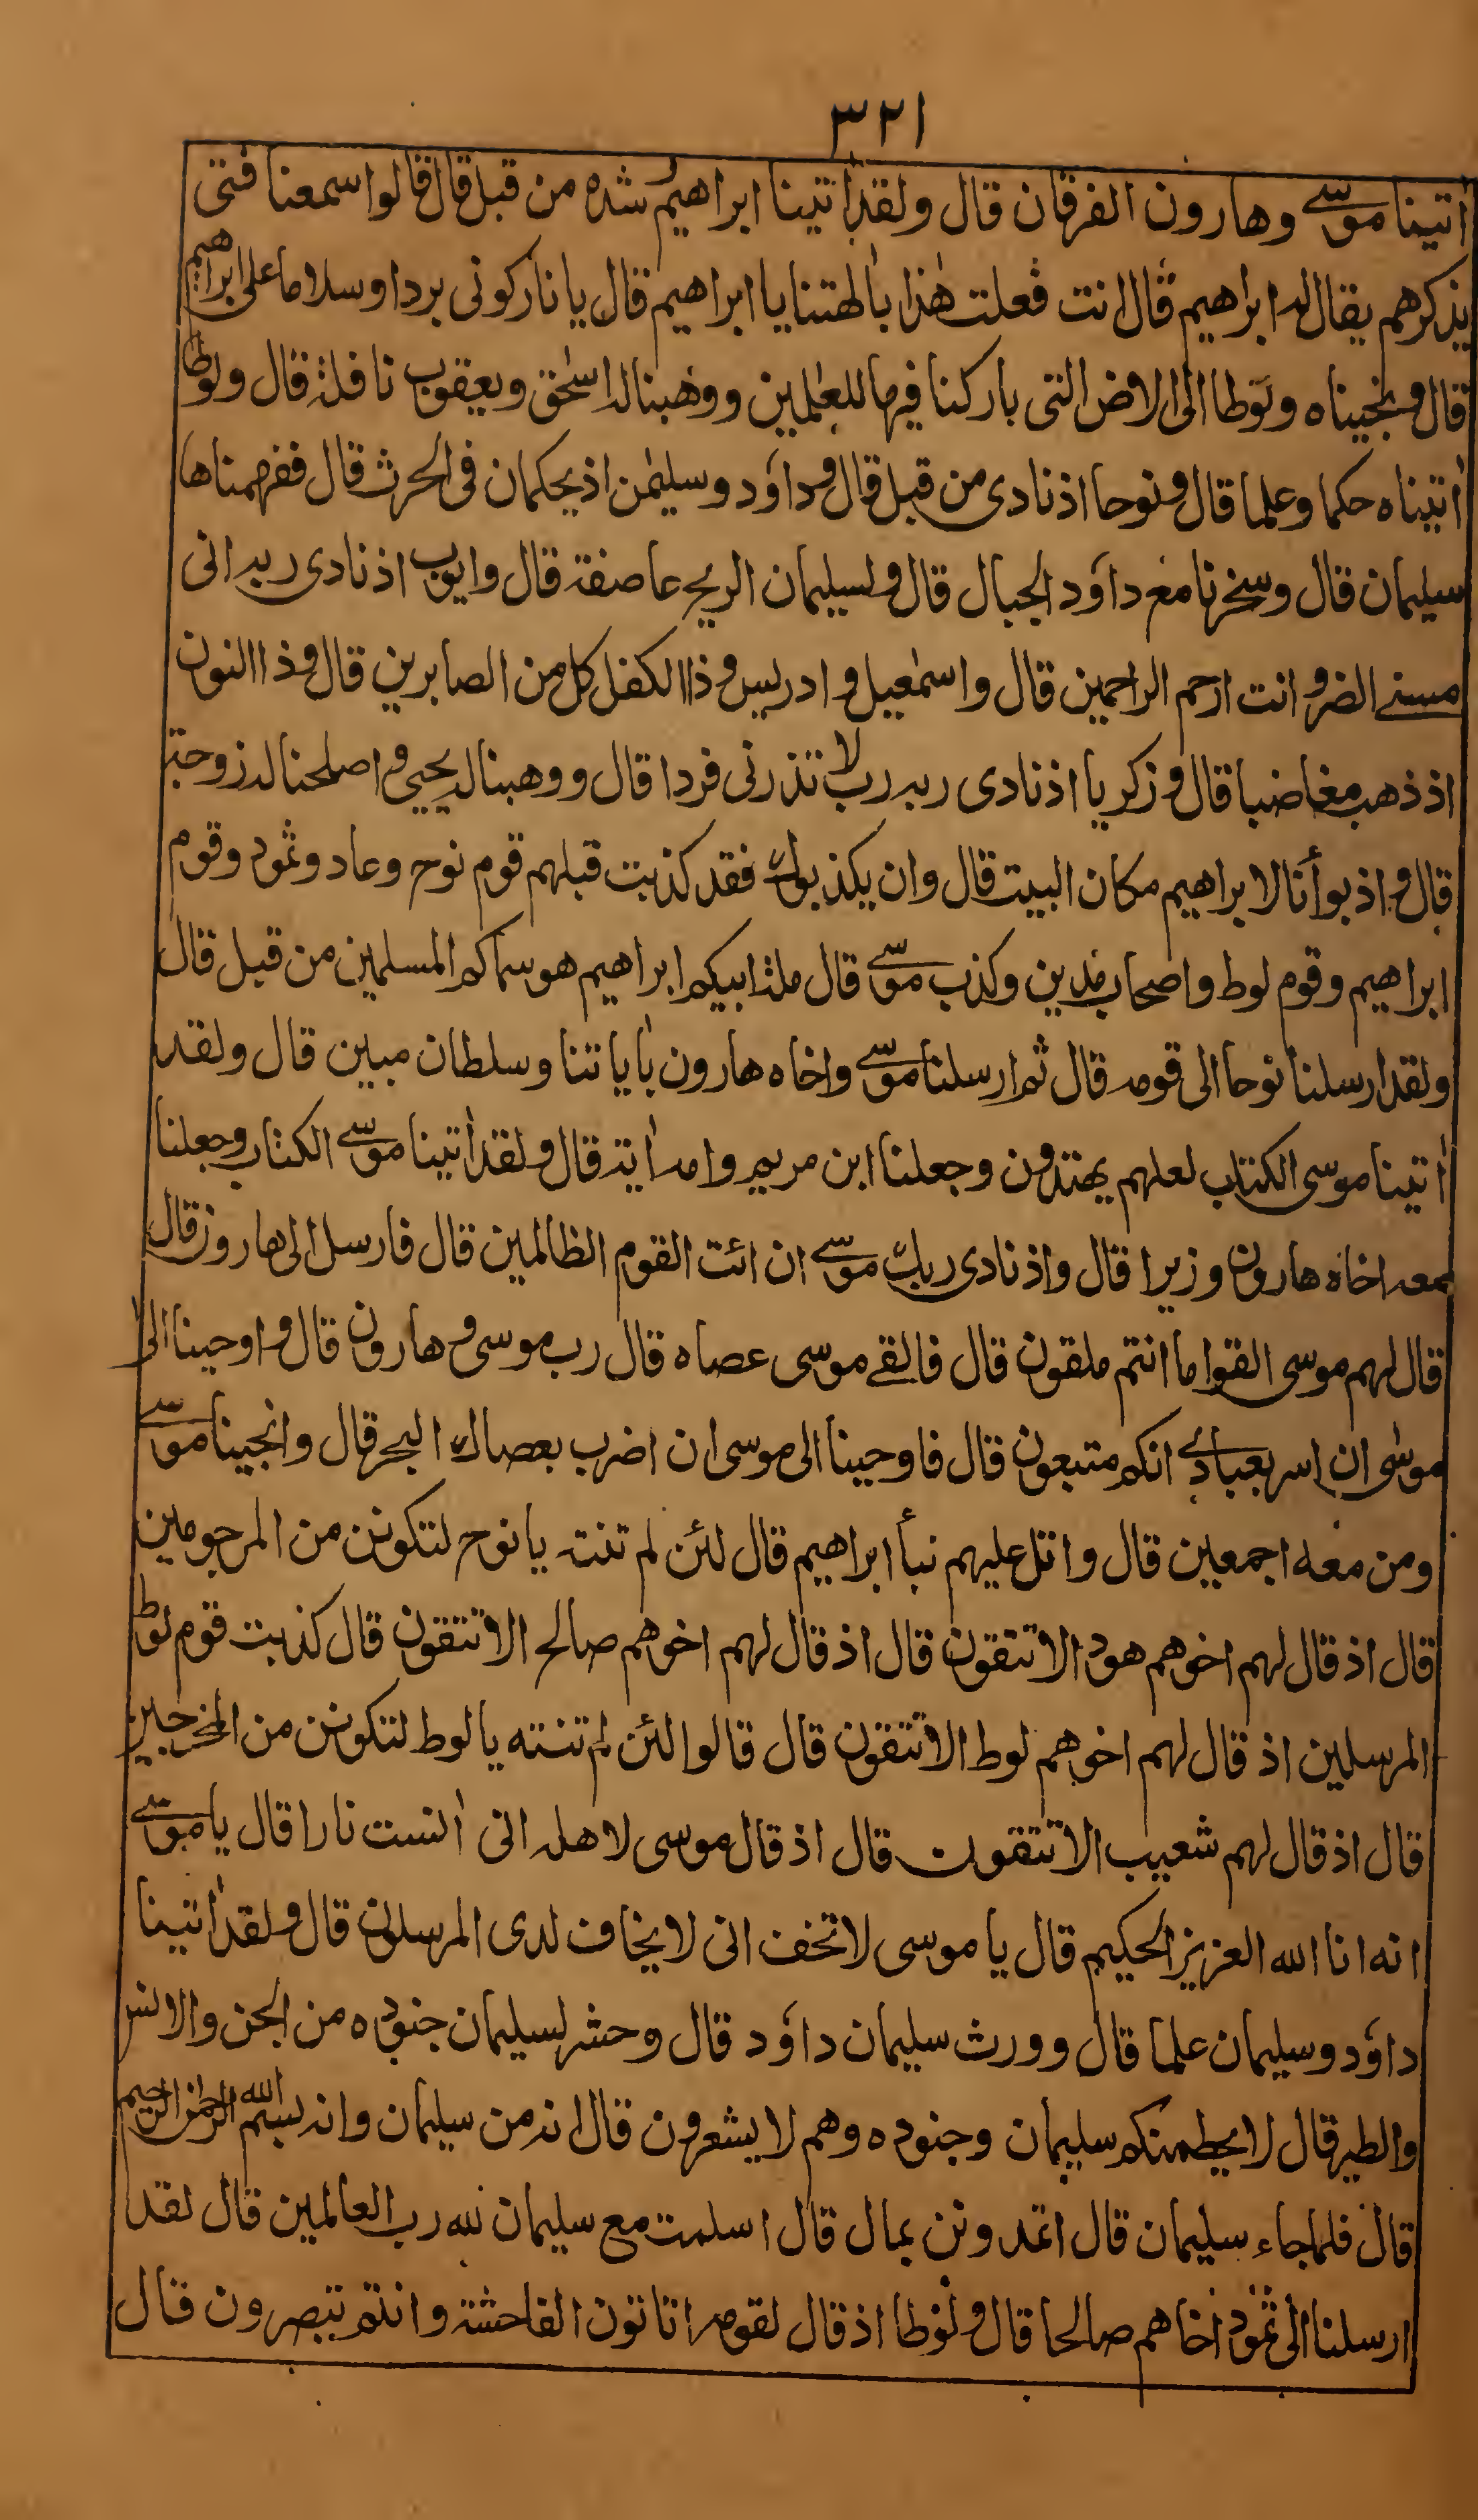 ٣٢١
أتينا موسى وهارون الفرقان قال ولقد أتينا ابراهيم رشده من قبل قال قالوا سمعنا فتى
يذكرهم يقال له ابراهيم قال انت فعلت هذا بألهتنا يا ابراهيم قال يا نار كونى بردا وسلاما على ابراهيم
قال ونجيناه ولوطا الى الارض التى باركنا فيها للعلمين ووهبنا له اسحق ويعقوب نافلة قال ولوطا
أتيناه حكما وعلما قال ونوحا اذ نادى من قبل قال وداود وسليمن اذ يحكمان فى الحرث قال ففهمناها
سليمان قال وسخرنا مع داود الجبال قال ولسليمان الريح عاصفة قال وايوب اذ نادى ربه انى
مسنى الضر وانت ارحم الراحمين قال واسمعيل وادريس وذا الكفل كل من الصابرين قال وذا النون
اذ ذهب مغاضبا قال وزكريا اذ نادى ربه رب لا تذرنى فردا قال ووهبنا له يحيى واصلحنا له زوجه
قال واذ بوأنا لابراهيم مكان البيت قال وان يكذبوك فقد كذبت قبلهم قوم نوح وعاد وثمود وقوم
ابراهيم وقوم لوط واصحاب مدين وكذب موسى قال ملة ابيكم ابراهيم هو سماكم المسلمين من قبل قال
ولقد ارسلنا نوحا الى قومه قال ثم ارسلنا موسى واخاه هارون بأياتنا وسلطان مبين قال ولقد
أتينا موسى الكتاب لعلهم يهتدون وجعلنا ابن مريم وامه أية قال ولقد أتينا موسى الكتاب وجعلنا
معه اخاه هارون وزيرا قال واذ نادى ربك موسى ان ائت القوم الظالمين قال فارسل الى هارون قال
قال لهم موسى القوا ما انتم ملقون قال فالقى موسى عصاه قال رب موسى وهارون قال واوحينا الى
موسى ان اسر بعبادى انكم متبعون قال فاوحينا الى موسى ان اضرب بعصاك البحر قال وانجينا موسى
ومن معه اجمعين قال واتل عليهم نبأ ابراهيم قال لئن لم تنته يا نوح لتكونن من المرجومين
قال اذ قال لهم اخوهم هود الا تتقون قال اذ قال لهم اخوهم صالح الا تتقون قال كذبت قوم لوط
المرسلين اذ قال لهم اخوهم لوط الا تتقون قال قالوا لئن لم تنته يا لوط لتكونن من المخرجين
قال اذ قال لهم شعيب الا تتقون قال اذ قال موسى لاهله انى أنست نارا قال يا موسى
انه انا الله العزيز الحكيم قال يا موسى لا تخف انى لا يخاف لدى المرسلون قال ولقد أتينا
داود وسليمان علما قال وورث سليمان داود قال وحشر لسليمان جنوده من الجن والانس
والطير قال لا يحطمنكم سليمان وجنوده وهم لا يشعرون قال انه من سليمان وانه بسم الله الرحمن الرحيم
قال فلما جاء سليمان قال اتمدونن بمال قال اسلمت مع سليمان لله رب العالمين قال لقد
ارسلنا الى ثمود اخاهم صالحا قال ولوطا اذ قال لقومه اتاتون الفاحشة وانتم تبصرون قال